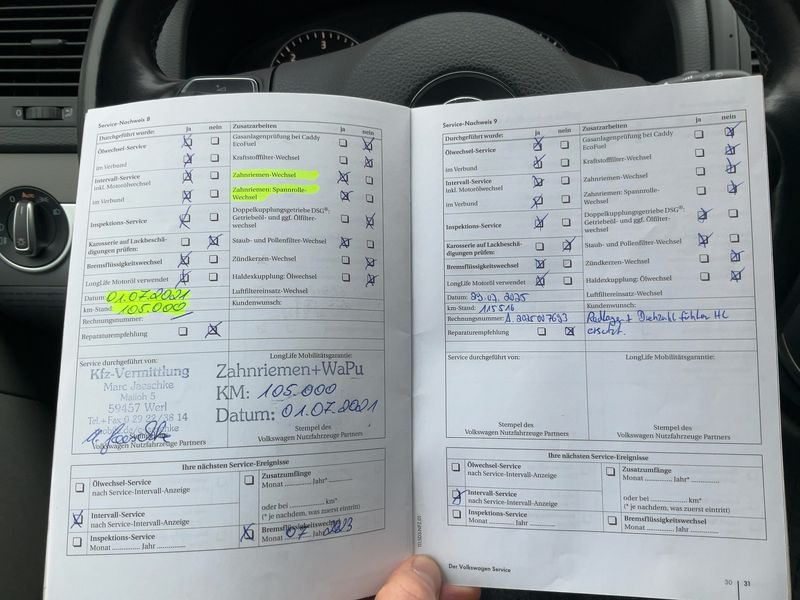 Service-Nachweis 8
Durchgeführt wurde: ja nein
Ölwechsel-Service
im Verbund
Intervall-Service
inkl. Motorölwechsel
im Verbund
Inspektions-Service
Karosserie auf Lackbeschä-
digungen prüfen:
Bremsflüssigkeitswechsel
LongLife Motoröl verwendet
Datum: 01.07.2021
km-Stand: 105.000
Rechnungsnummer:
Reparaturempfehlung
Zusatzarbeiten ja nein
Gasanlagenprüfung bei Caddy
EcoFuel
Kraftstofffilter-Wechsel
Zahnriemen-Wechsel
Zahnriemen: Spannrolle-
Wechsel
Doppelkupplungsgetriebe DSG®:
Getriebeöl- und ggf. Ölfilter-
wechsel
Staub- und Pollenfilter-Wechsel
Zündkerzen-Wechsel
Haldexkupplung: Ölwechsel
Luftfiltereinsatz-Wechsel
Kundenwunsch:
Service durchgeführt von:
Kfz-Vermittlung
Marc Jaeschke
59457 Werl
Volkswagen Nutzfahrzeuge Partners
LongLife Mobilitätsgarantie:
Zahnriemen+WaPu
KM: 105.000
Datum: 01.07.2021
Stempel des
Volkswagen Nutzfahrzeuge Partners
Ihre nächsten Service-Ereignisse
Ölwechsel-Service
nach Service-Intervall-Anzeige
Intervall-Service
nach Service-Intervall-Anzeige
Inspektions-Service
Monat ............ Jahr ............
Zusatzumfänge
Monat ............ Jahr ............*
oder bei ............ km*
(* je nachdem, was zuerst eintritt)
Bremsflüssigkeitswechsel
Monat 07 Jahr
Service-Nachweis 9
Durchgeführt wurde: ja nein
Ölwechsel-Service
im Verbund
Intervall-Service
inkl. Motorölwechsel
im Verbund
Inspektions-Service
Karosserie auf Lackbeschä-
digungen prüfen:
Bremsflüssigkeitswechsel
LongLife Motoröl verwendet
Datum:
km-Stand: 115516
Rechnungsnummer:
Reparaturempfehlung
Zusatzarbeiten ja nein
Gasanlagenprüfung bei Caddy
EcoFuel
Kraftstofffilter-Wechsel
Zahnriemen-Wechsel
Zahnriemen: Spannrolle-
Wechsel
Doppelkupplungsgetriebe DSG®:
Getriebeöl- und ggf. Ölfilter-
wechsel
Staub- und Pollenfilter-Wechsel
Zündkerzen-Wechsel
Haldexkupplung: Ölwechsel
Luftfiltereinsatz-Wechsel
Kundenwunsch:
Radlager + Drehzahlfühler HL
ersetzt.
Service durchgeführt von:
Stempel des
Volkswagen Nutzfahrzeuge Partners
LongLife Mobilitätsgarantie:
Stempel des
Volkswagen Nutzfahrzeuge Partners
Ihre nächsten Service-Ereignisse
Ölwechsel-Service
nach Service-Intervall-Anzeige
Intervall-Service
nach Service-Intervall-Anzeige
Inspektions-Service
Monat ............ Jahr ............
Zusatzumfänge
Monat ............ Jahr ............*
oder bei ............ km*
(* je nachdem, was zuerst eintritt)
Bremsflüssigkeitswechsel
Monat ............ Jahr ............
Der Volkswagen Service
30 | 31